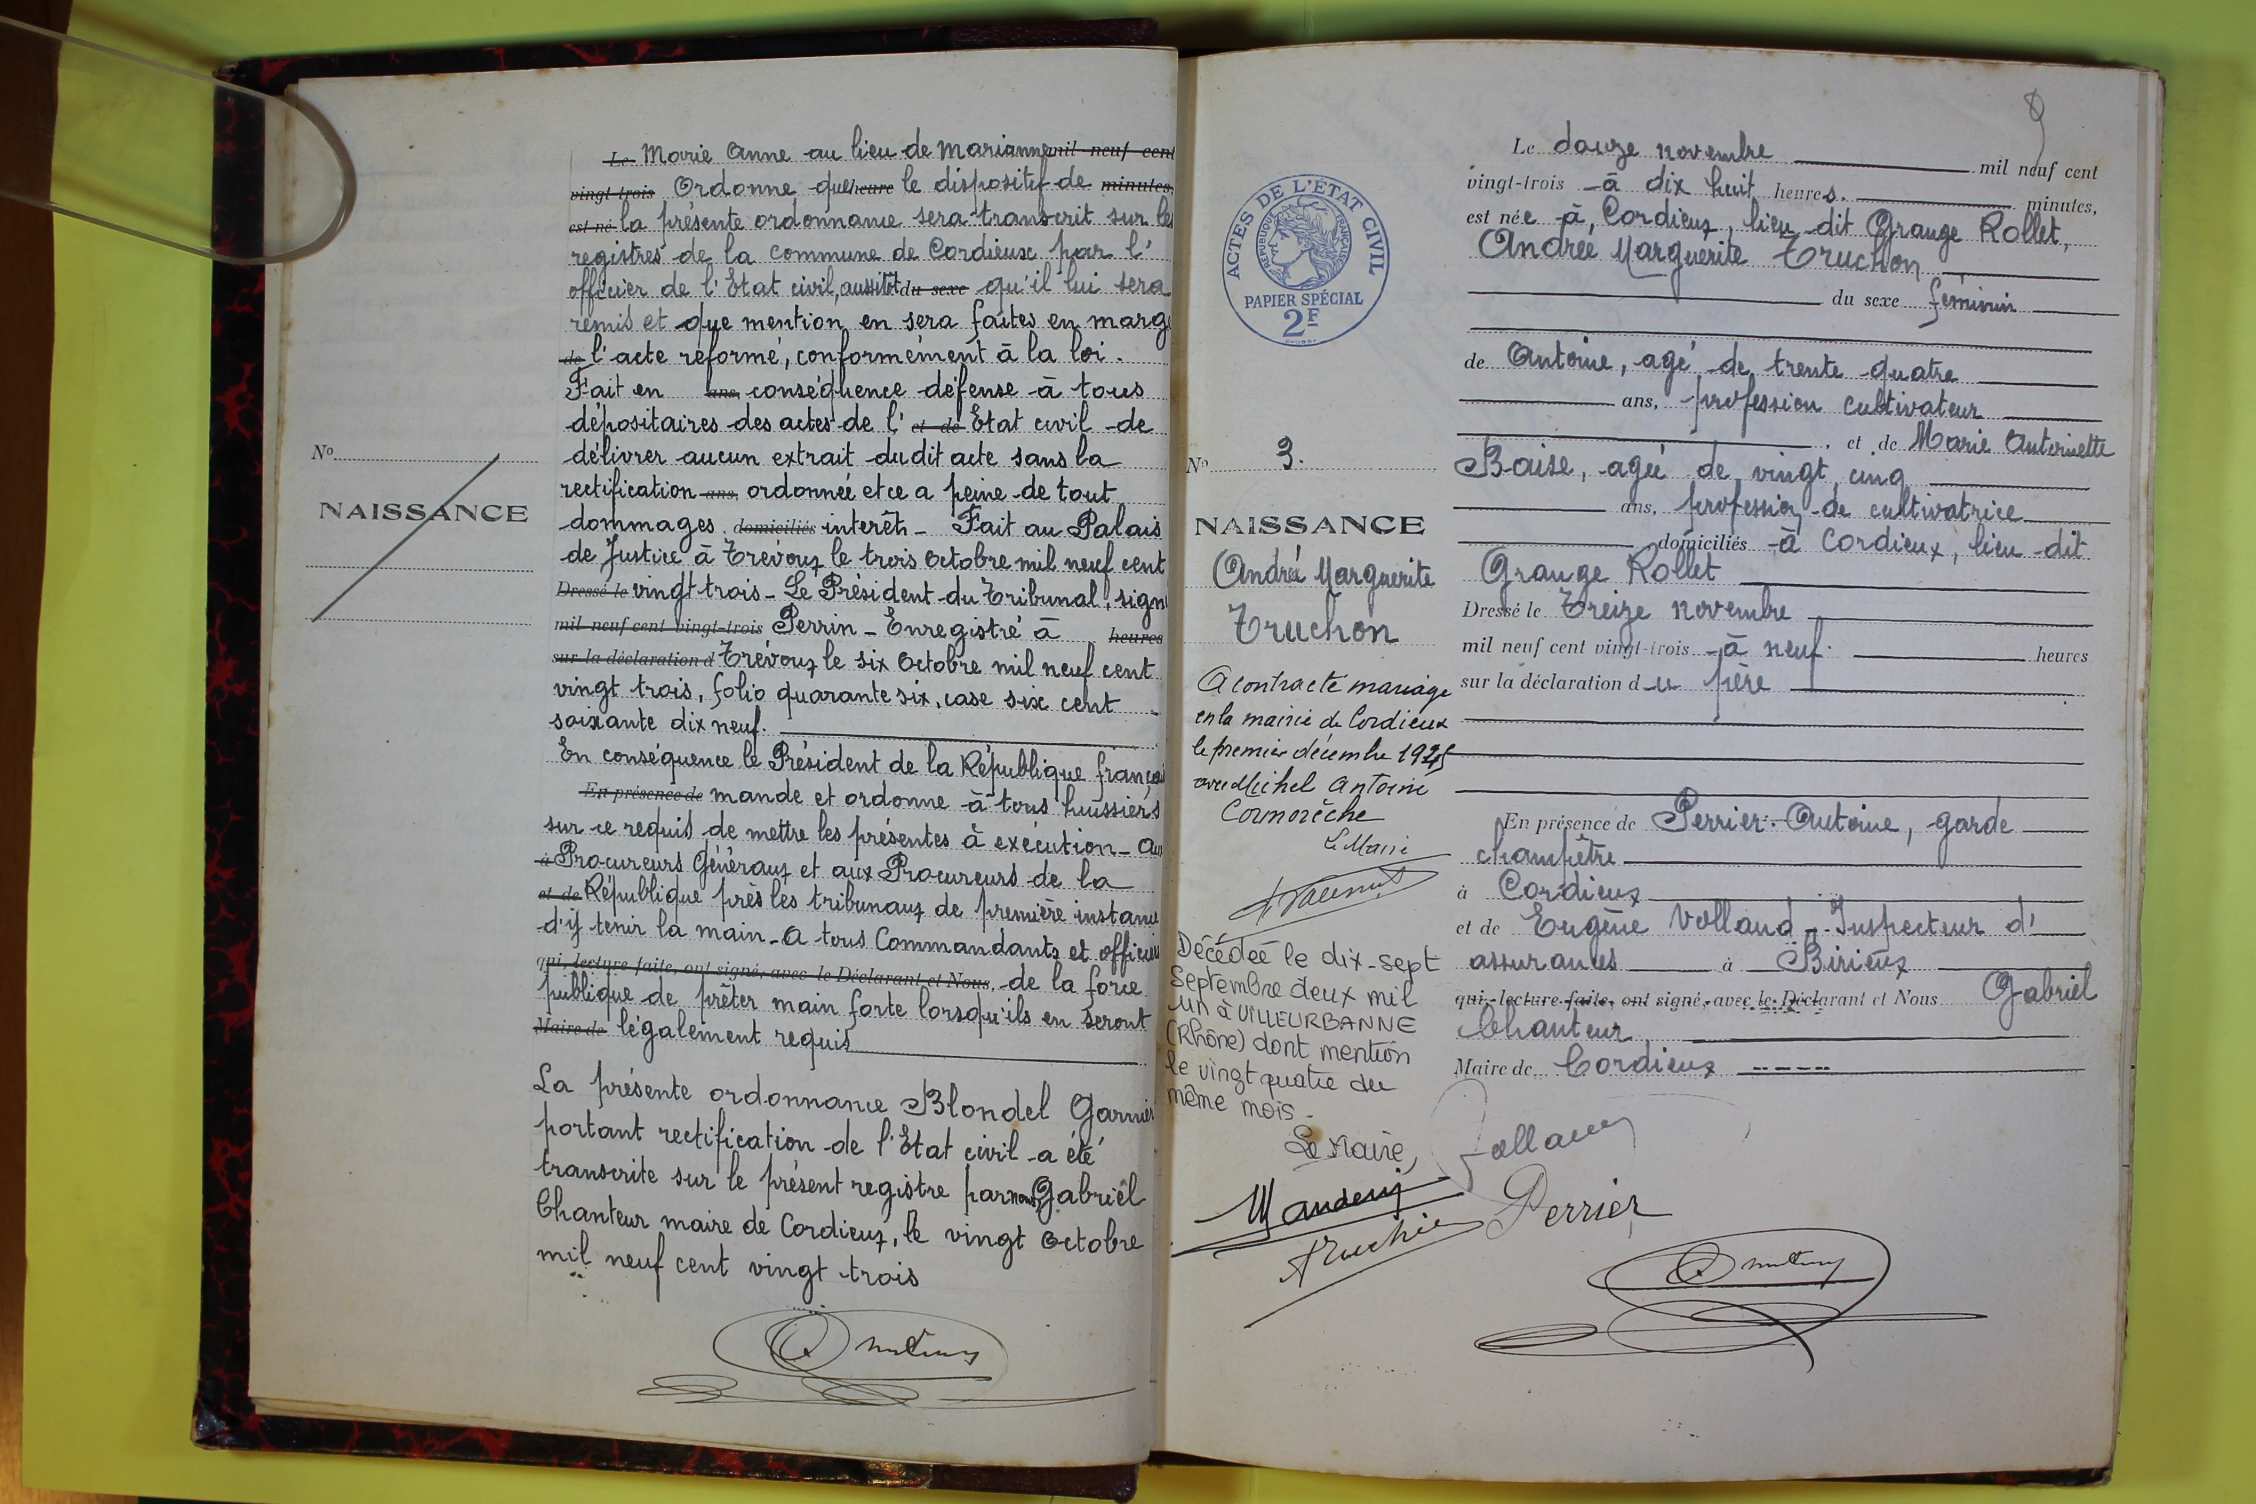 Le Marie Anne au lieu de Marianne mil neuf cent
vingt-trois Ordonne que heure le dispositif de minutes,
est né la présente ordonnance sera transcrit sur les
registres de la commune de Cordieux par l'
officier de l'Etat civil, aussitôt du sexe qu'il lui sera
remis et que mention en sera faites en marge
de l'acte réformé, conformément à la loi.
Fait en ans, conséquence défense à tous
dépositaires des actes de l' et de Etat civil de
délivrer aucun extrait du dit acte sans la
rectification ans, ordonnée et ce a peine de tout
dommages domiciliés interêts - Fait au Palais
de Justice à Trévoux le trois Octobre mil neuf cent
Dressé le vingt-trois - Le Président du Tribunal, signé
mil neuf cent vingt-trois Perrin - Enregistré à heures
sur la déclaration d Trévoux le six Octobre mil neuf cent
vingt trois, folio quarante six, case six cent
soixante dix neuf.
En conséquence le Président de la République françai
En présence de mande et ordonne à tous huissiers
sur ce requis de mettre les présentes à exécution - Aux
à Procureurs Généraux et aux Procureurs de la
et de République près les tribunaux de première instance
d'y tenir la main - A tous Commandants et officiers
qui, lecture faite, ont signé, avec le Déclarant et Nous, de la force
publique de prêter main forte lorsqu'ils en seront
Maire de légalement requis
La présente ordonnance Blondel Garnier
portant rectification de l'Etat civil a été
transcrite sur le présent registre par nous Gabriel
Chanteur maire de Cordieux, le vingt Octobre
mil neuf cent vingt trois
No
NAISSANCE
ACTES DE L'ÉTAT CIVIL
RÉPUBLIQUE FRANÇAISE
PAPIER SPÉCIAL
2F
No 3.
NAISSANCE
Andrée Marguerite
Truchon
A contracté mariage
en la mairie de Cordieux
le premier décembre 1945
avec Michel Antoine
Cormorèche
Le Maire
Décédée le dix-sept
Septembre deux mil
un à VILLEURBANNE
(Rhône) dont mention
le vingt quatre du
même mois -
Le Maire,
Truchon
9
Le douze novembre mil neuf cent
vingt-trois à dix huit heures. minutes,
est née à Cordieux, lieu dit Grange Rollet,
Andrée Marguerite Truchon
du sexe féminin
de Antoine, agé de trente quatre
ans, profession cultivateur
, et de Marie Antoinette
Baise, agée de vingt cinq
ans, profession de cultivatrice
domiciliés à Cordieux, lieu dit
Grange Rollet
Dressé le Treize novembre
mil neuf cent vingt-trois à neuf heures
sur la déclaration du père
En présence de Perrier Antoine, garde
champêtre
à Cordieux
et de Eugène Volland - Inspecteur d'
assurances à Birieux
qui, lecture faite, ont signé, avec le Déclarant et Nous Gabriel
Chanteur
Maire de Cordieux
Volland
Perrier